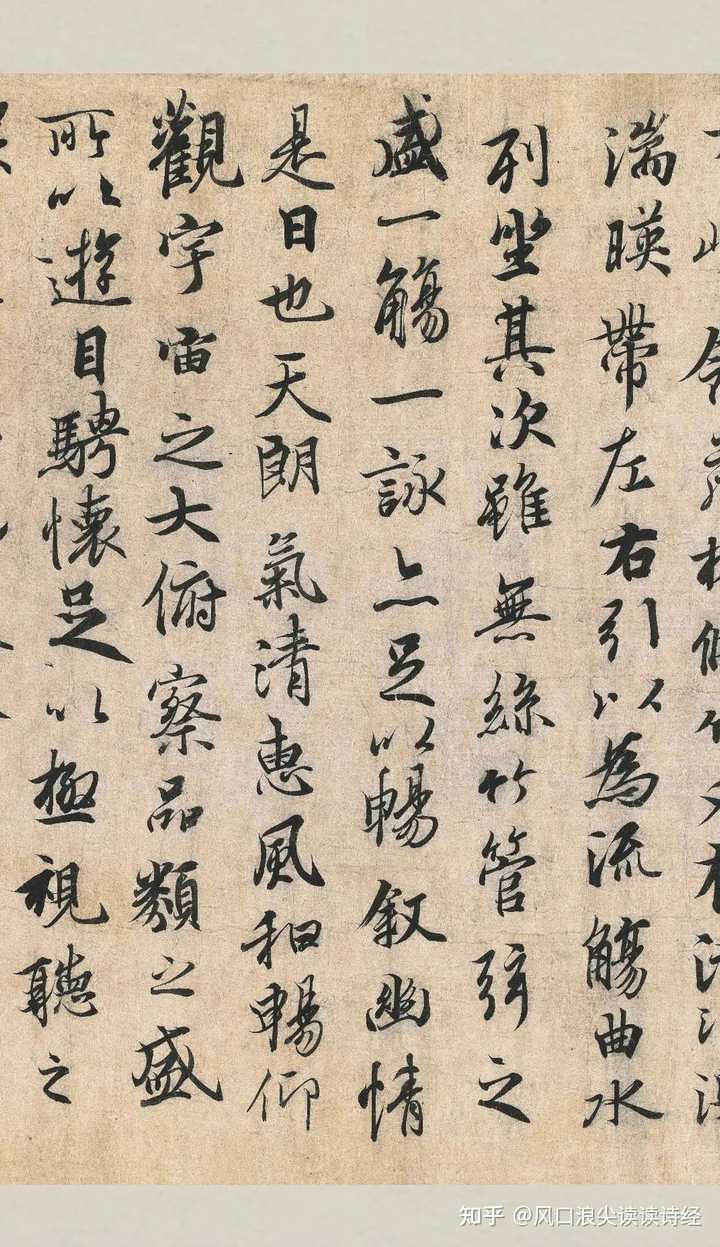 湍暎帶左右引以為流觴曲水
列坐其次雖無絲竹管弦之
盛一觴一詠亦足以暢叙幽情
是日也天朗氣清惠風和暢仰
觀宇宙之大俯察品類之盛
所以遊目騁懷足以極視聽之
知乎 @风口浪尖读读诗经